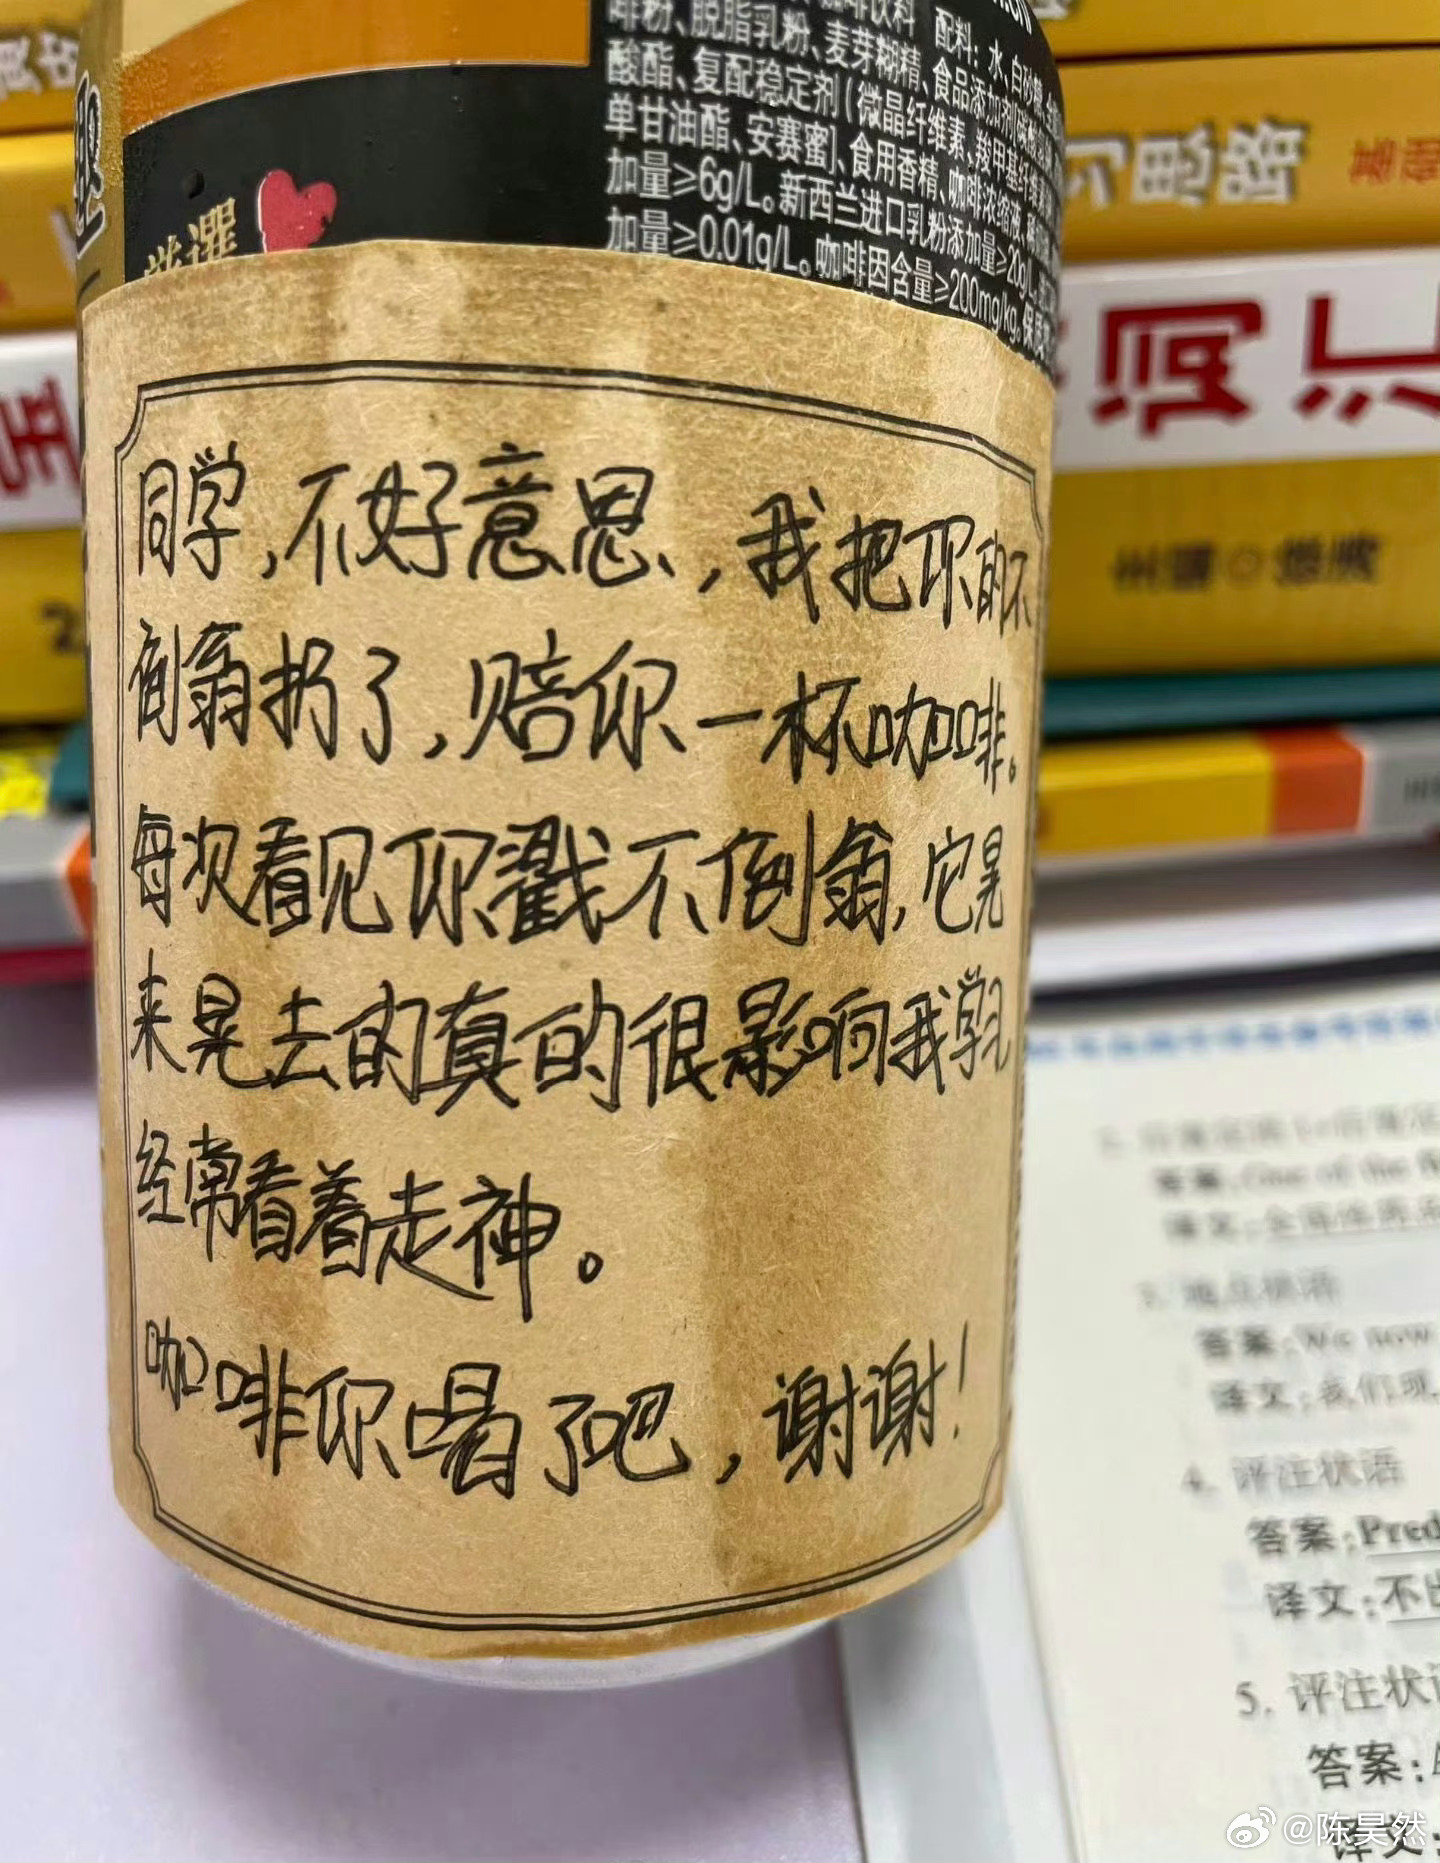 啡粉、脱脂乳粉、麦芽糊精、食品添加剂
配料：水、白砂糖、
酸酯、复配稳定剂（微晶纤维素、羧甲基纤维素
单甘油酯、安赛蜜）、食用香精、咖啡浓缩液、
加量≥6g/L。新西兰进口乳粉添加量≥20g/L
加量≥0.01g/L。咖啡因含量≥200mg/kg。保质
選
同学，不好意思，我把你的不
倒翁扔了，赔你一杯咖啡。
每次看见你戳不倒翁，它晃
来晃去的真的很影响我学习
经常看着走神。
咖啡你喝了吧，谢谢！
思路
基础
词汇
主编
答案：One of the
译文：
3. 地点状语
答案：We now
译文：我们现
4. 评注状语
答案：Pred
译文：不出
5. 评注状语
答案：
译文：
@陈昊然